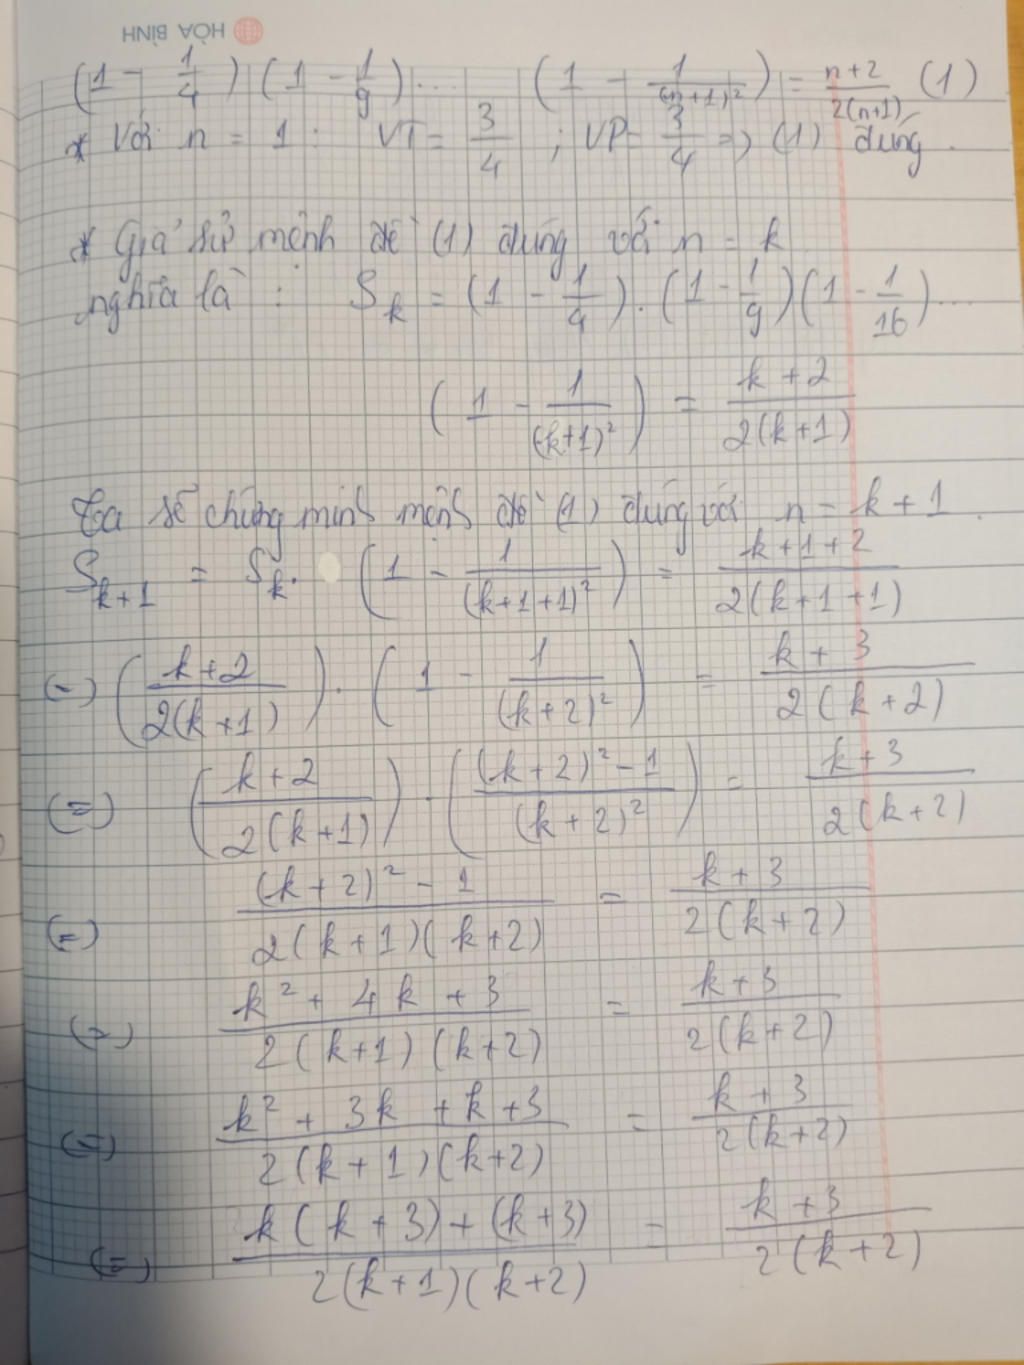 HÒA BÌNH
(1 - 1/4) (1 - 1/9) ... (1 - 1/(n+1)²) = n+2/2(n+1) (1)
* Với n = 1 : VT = 3/4 ; VP = 3/4 => (1) đúng.
* Giả sử mệnh đề (1) đúng với n = k
nghĩa là : S_k = (1 - 1/4) . (1 - 1/9) (1 - 1/16) ...
(1 - 1/(k+1)²) = k+2/2(k+1)
Ta sẽ chứng minh mệnh đề (1) đúng với n = k + 1.
S_k+1 = S_k . (1 - 1/(k+1+1)²) = k+1+2/2(k+1+1)
(=) (k+2/2(k+1)) . (1 - 1/(k+2)²) = k+3/2(k+2)
(=) (k+2/2(k+1)) . ((k+2)² - 1/(k+2)²) = k+3/2(k+2)
(=) (k+2)² - 1/2(k+1)(k+2) = k+3/2(k+2)
(=) k² + 4k + 3/2(k+1)(k+2) = k+3/2(k+2)
(=) k² + 3k + k + 3/2(k+1)(k+2) = k+3/2(k+2)
(=) k(k+3) + (k+3)/2(k+1)(k+2) = k+3/2(k+2)